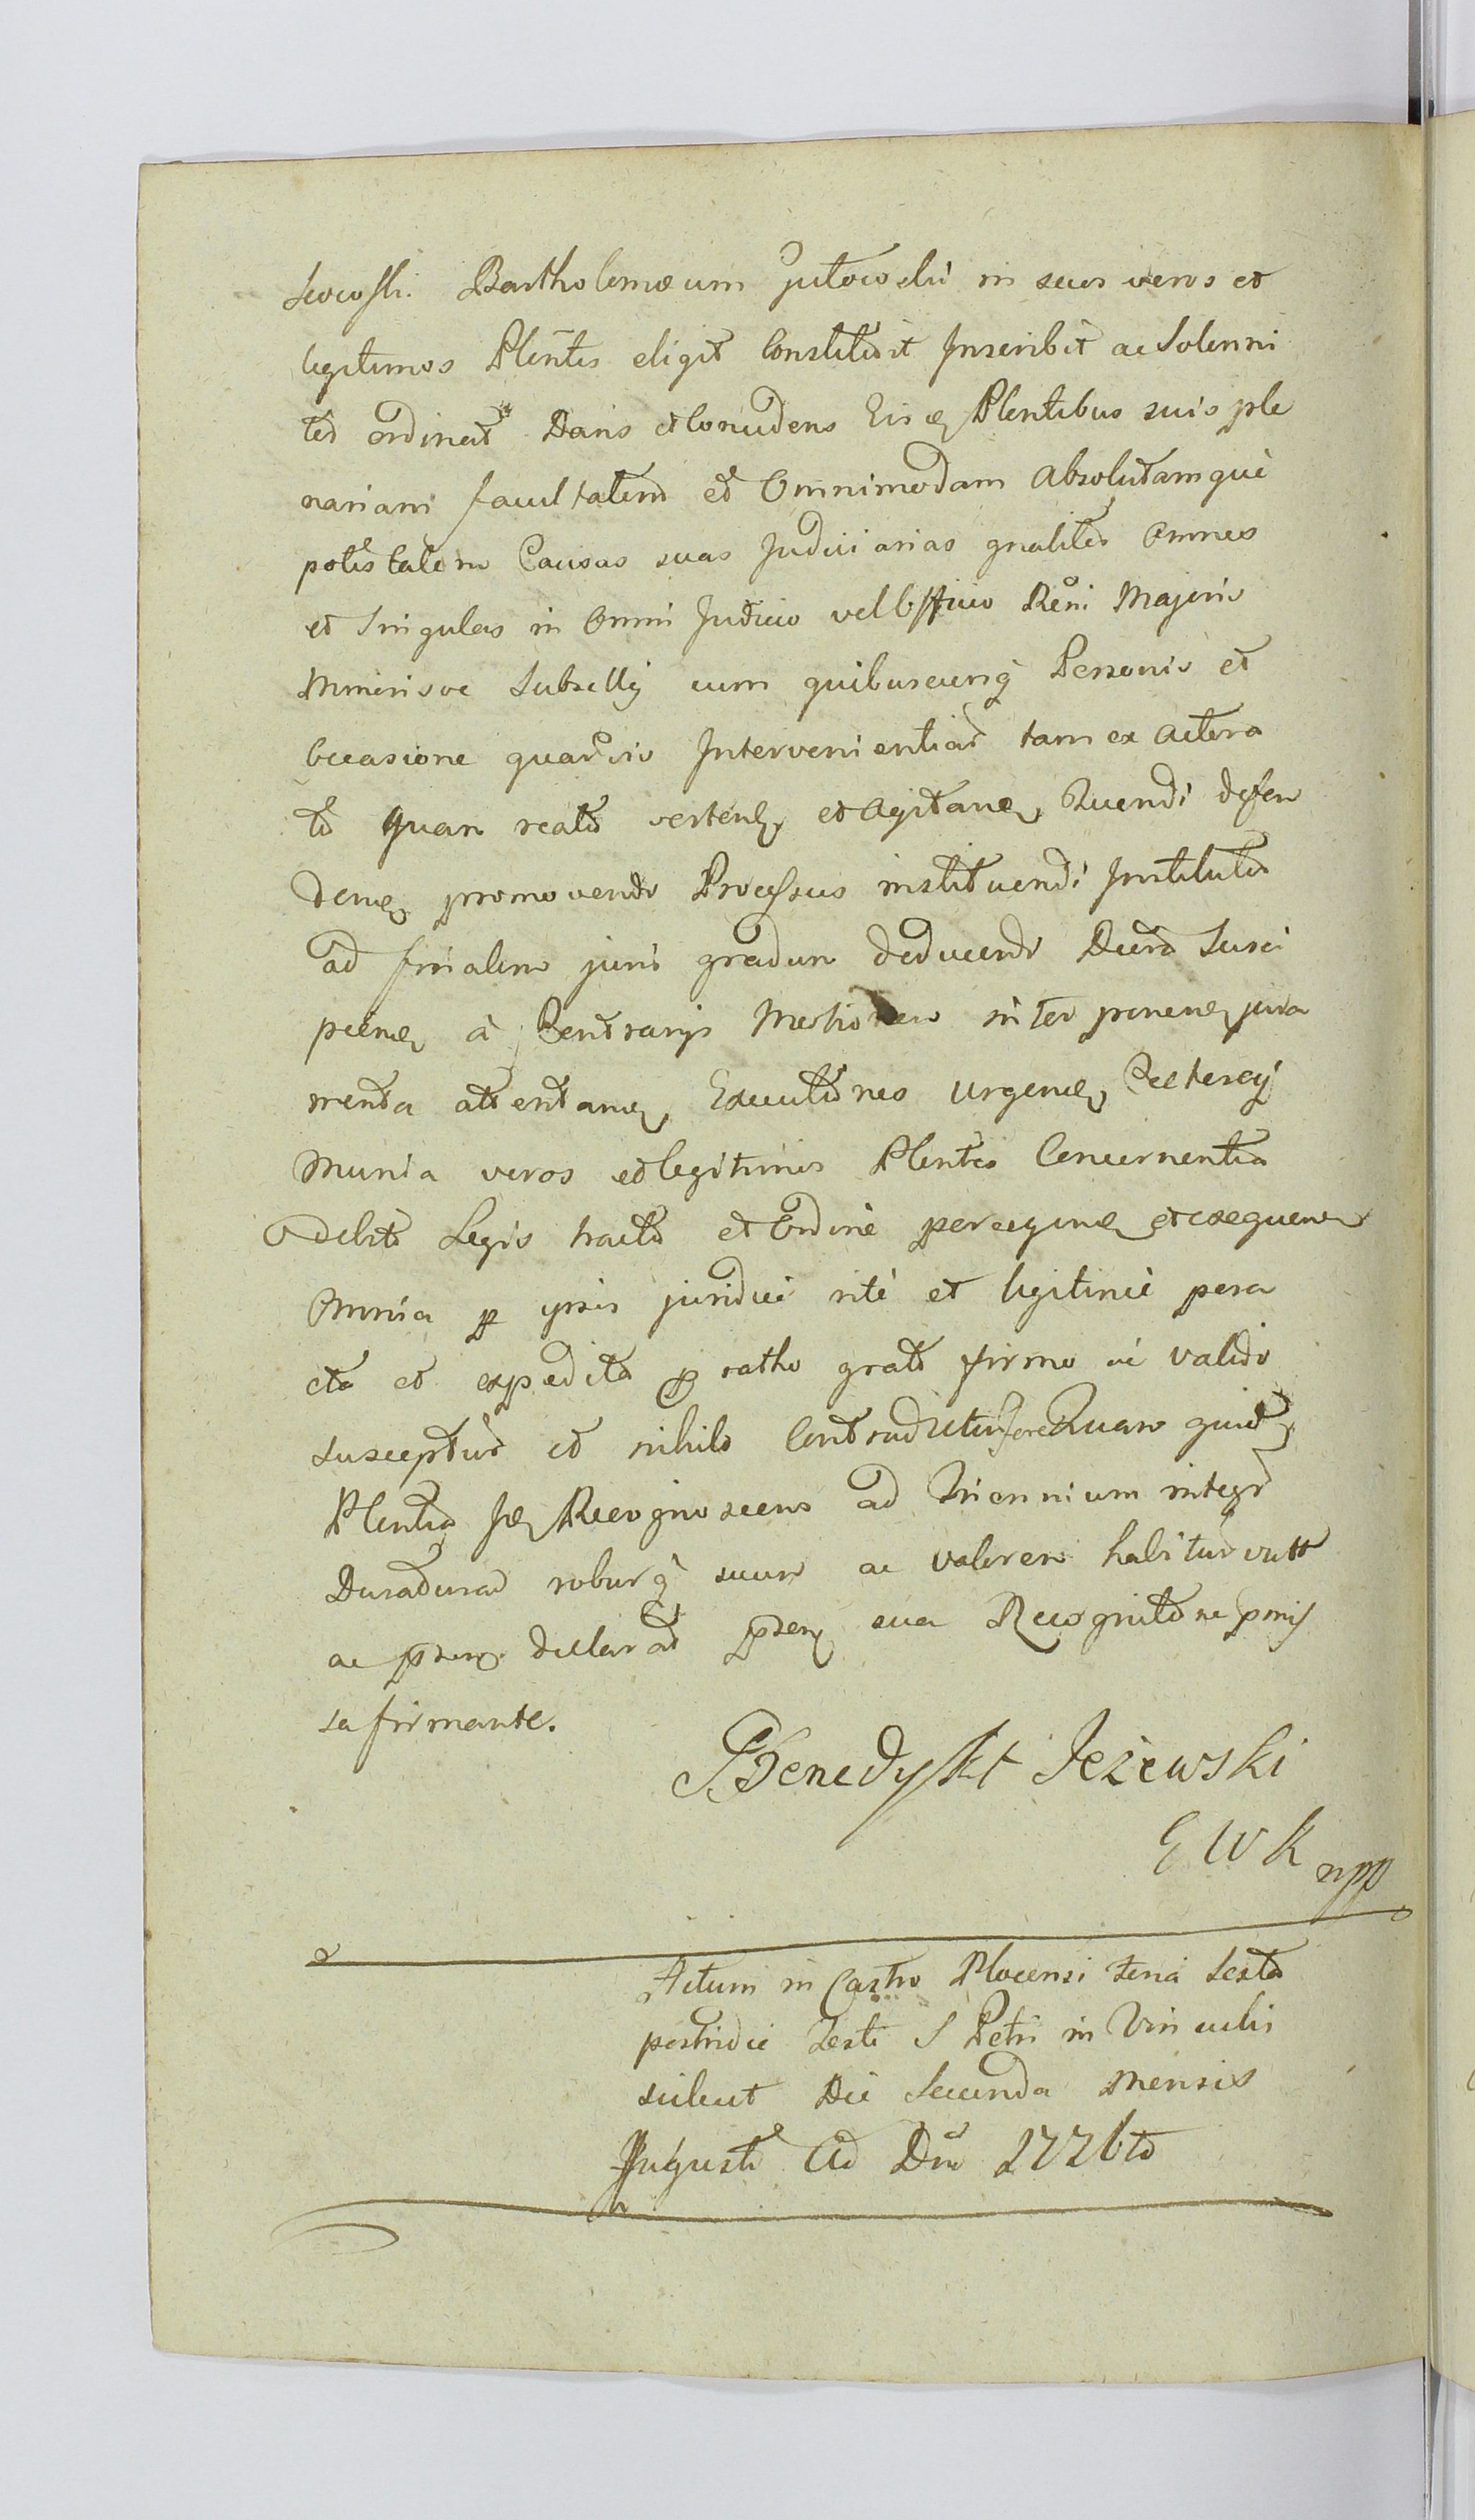 Bartholomæum in suos veros et
legitimos Plentes eligit Constituit Inscribit ac Solenni
ter ordinat Dans et Concedens Eisdem Plentibus suis ple
nariam facultatem et Omnimodam Absolutamque
potestatem Causas suas Judiciarias gnaliter Omnes
et Singulas in Omni Judicio vel Officio Regni Majoris
Minorisve Subsellij cum quibuscunq Personis et
Occasione quarvis Intervenientiar tam ex actora
to quam reato verten et Agitan Quendi defen
den promovendi Processus instituendi Institutos
ad finalem juris gradum deducendi Decreta Susci
pien a Contrarijs Motionem interponen jura
menta attentan Executiones Urgen Ceteraq
Munia veros et legitimos Plentes Concernentia
debito Legis tractu et Ordine peragen et exequen
Omnia p ipsos juridice rite et legitime pera
cta et expedita p ratho grato firmo ac valido
suscepturus et nihilo Contradicturus fore Quam quid
Plentia Idem Recognoscens ad Triennium integrum
Duraturam roburq suum ac valorem habituram vult
ac pnsen declarat pnsen sua Recognitione pmis
sa firmante.
Benedykt Jeżewski
G W K mpp
Actum in Castro Plocensi feria Sexta
postridie festi S Petri in Vinculis
scilicet Die Secunda Mensis
Augusti Ao Dni 1776to